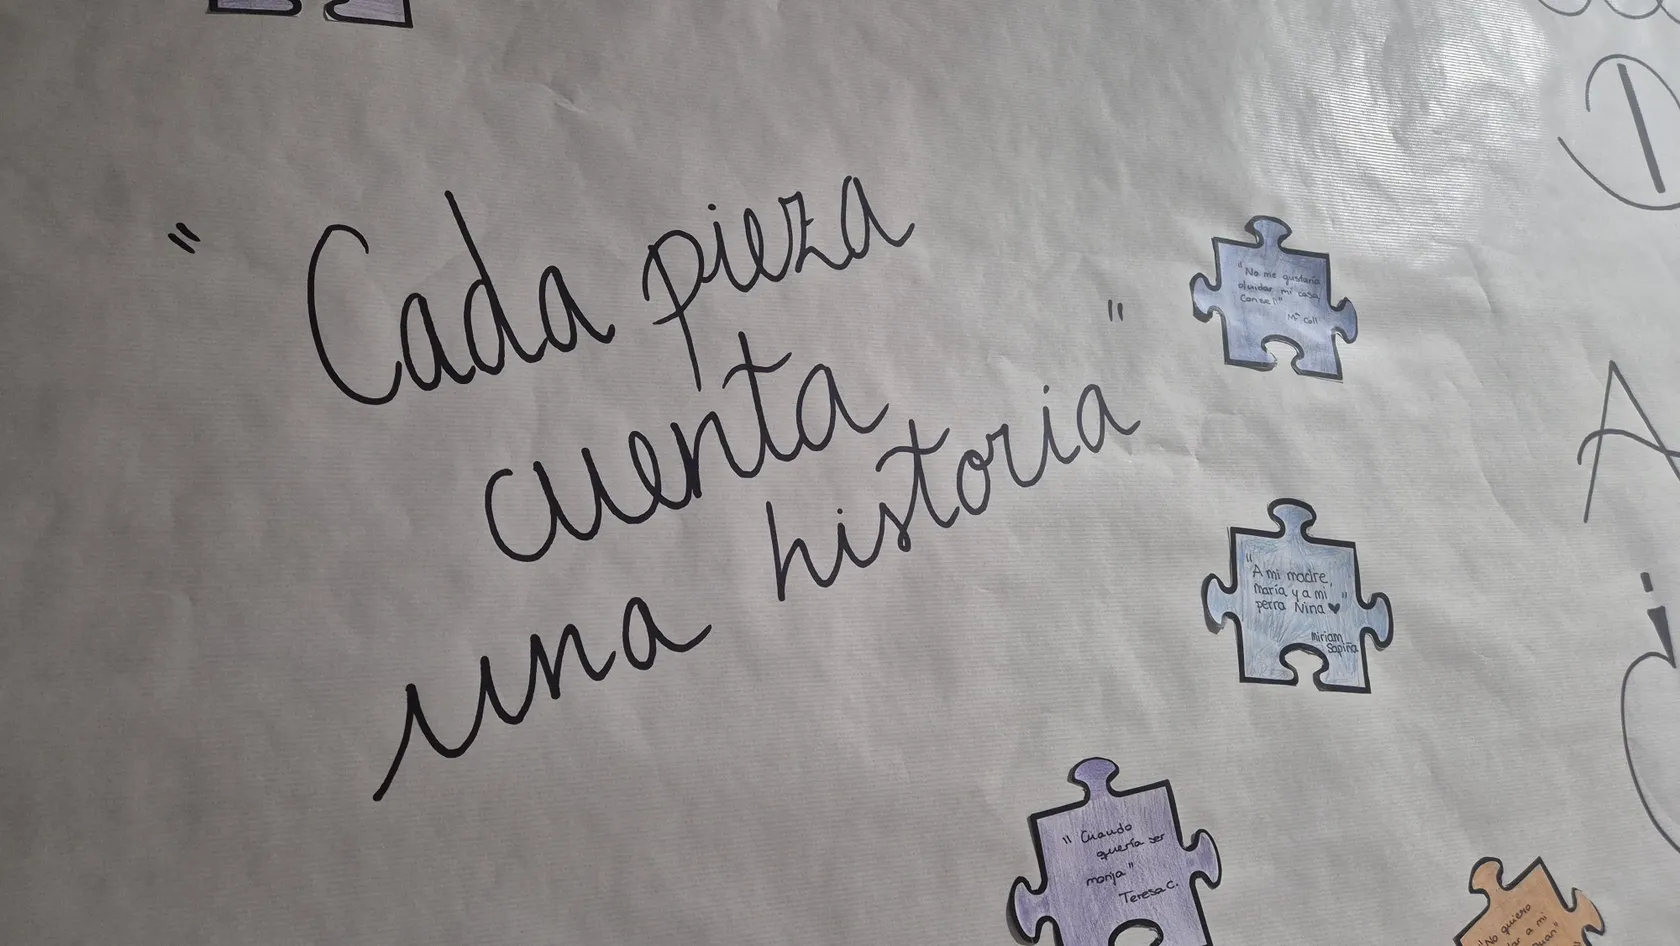 "Cada pieza
cuenta
una historia"
"No me gustaría
olvidar mi casa,
Mª Coll
"A mi madre,
maría, y a mi
perra Nina ♥"
miriam
Sapiña
"Cuando
quería ser
monja"
Teresa C.
"No quiero
a mi
D
A